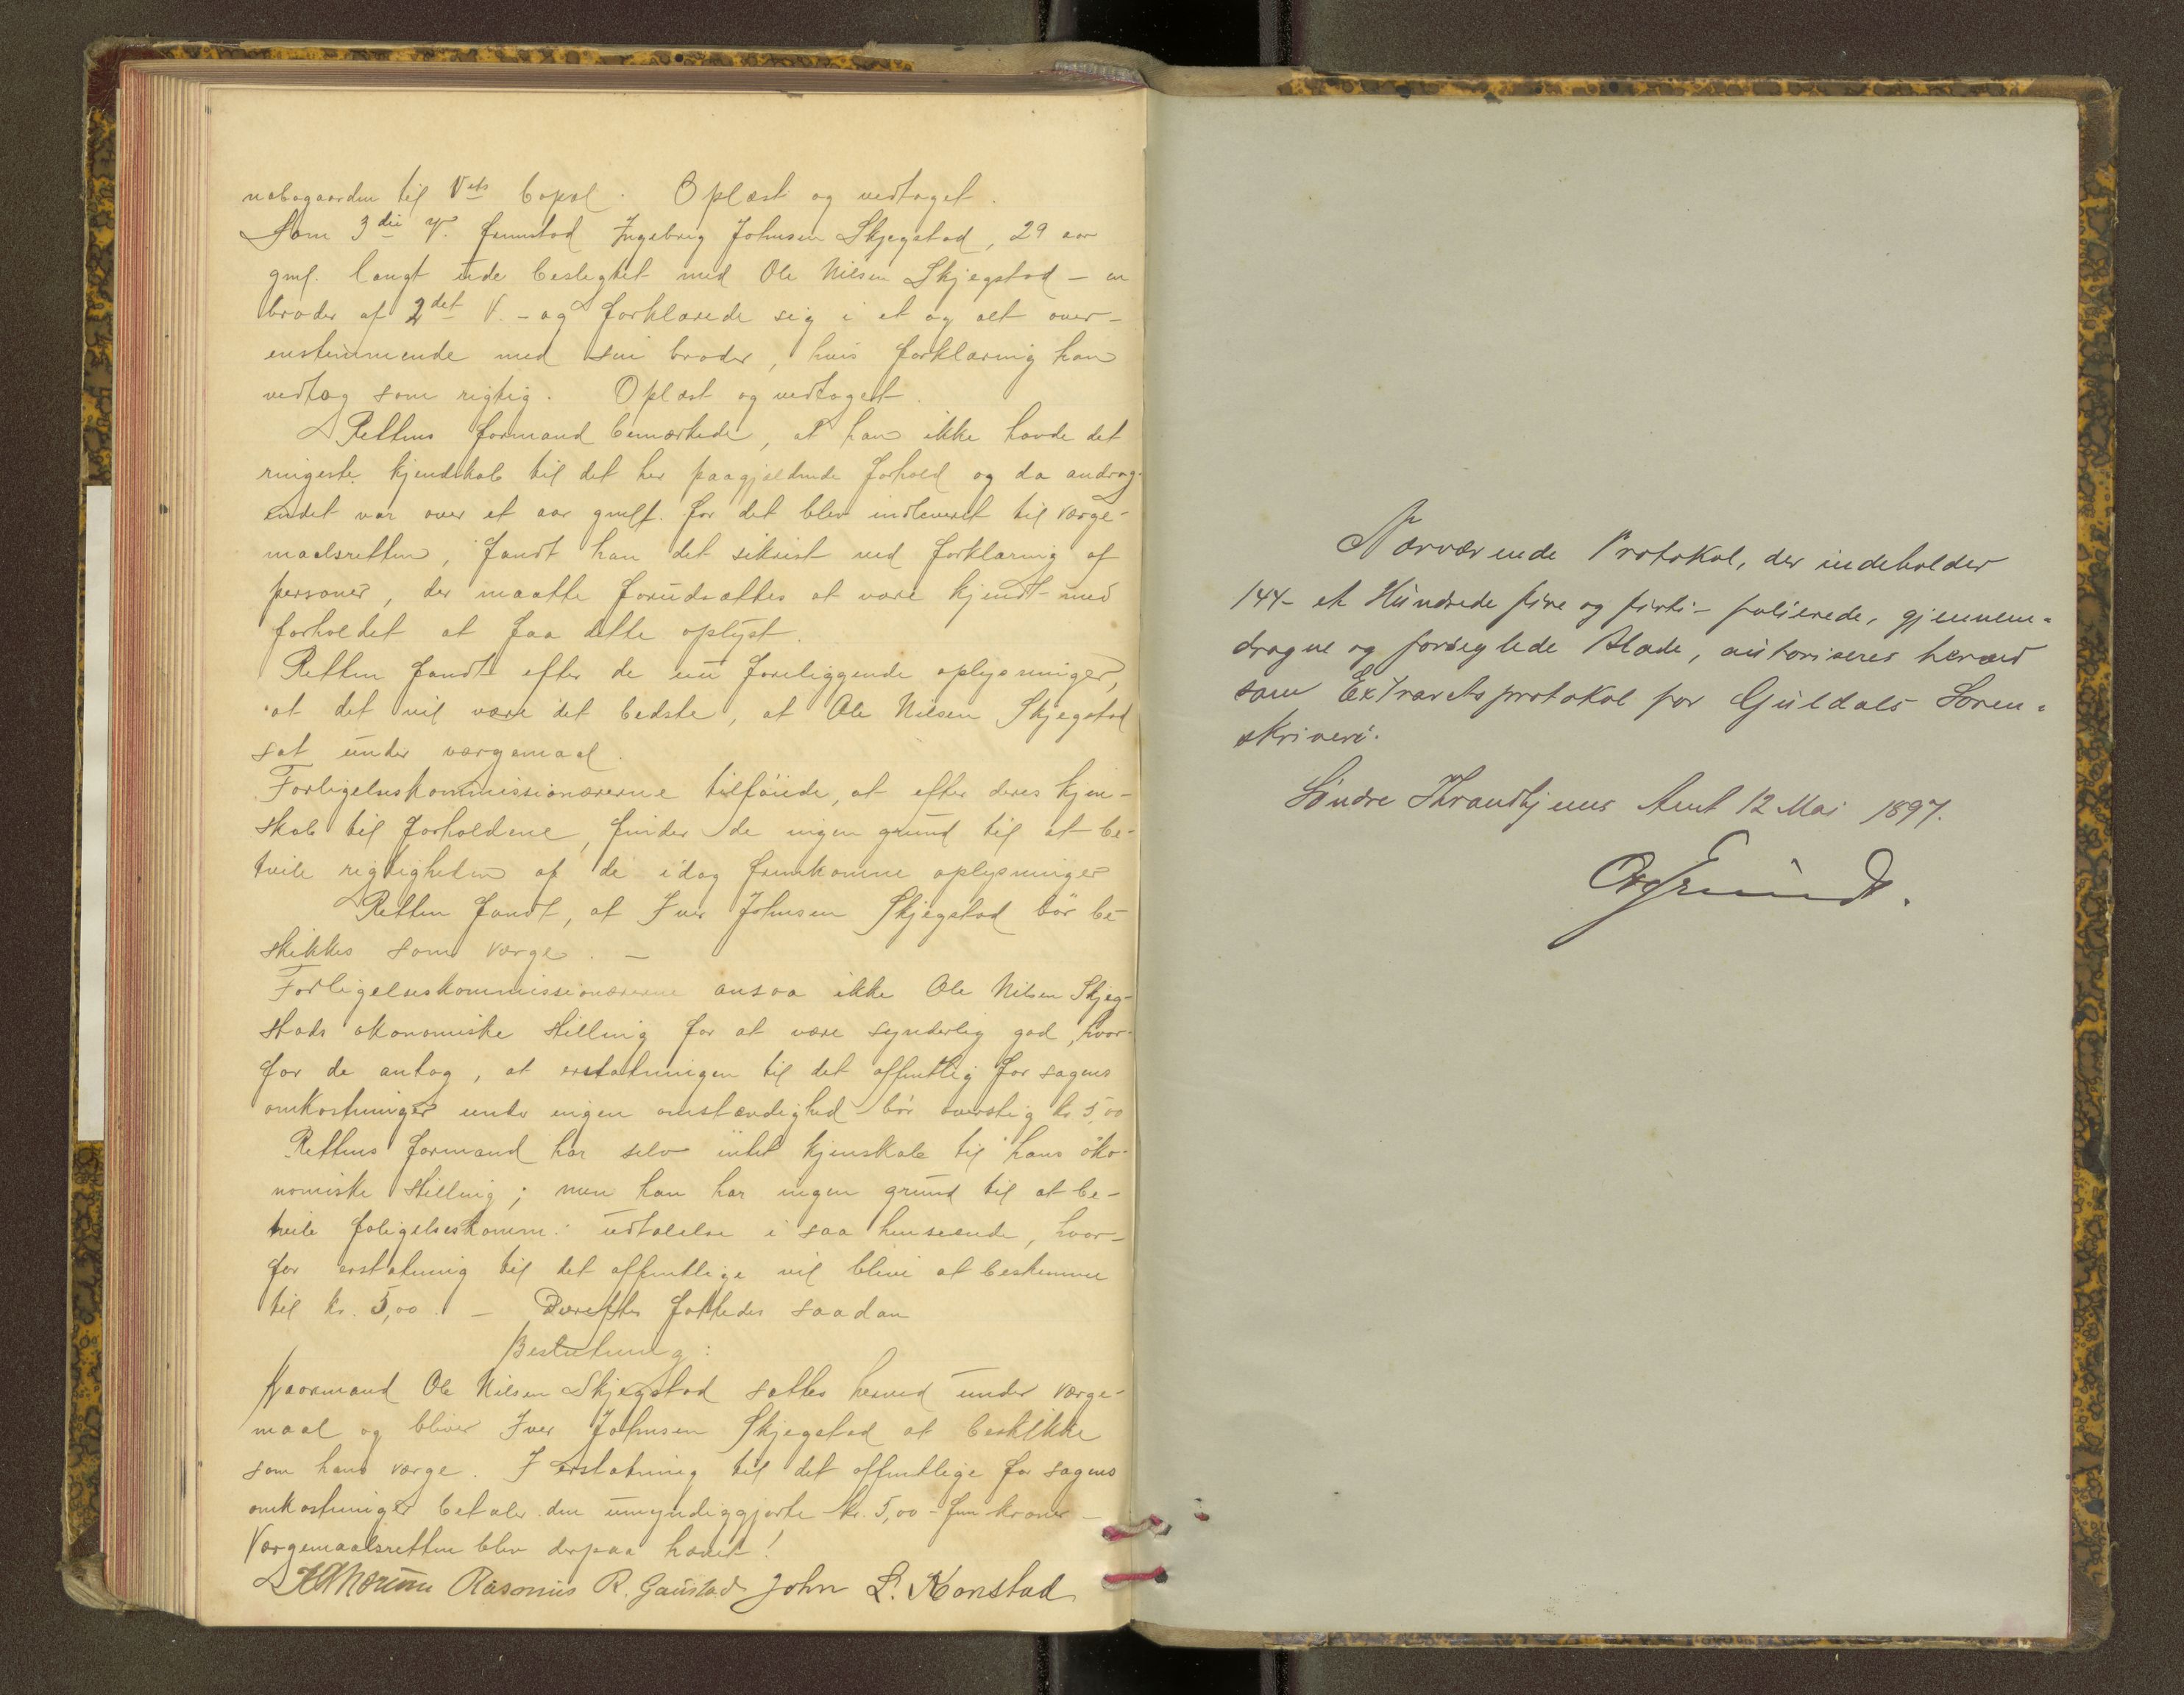 nabogaarden til Vets bopæl. Oplæst og vedtaget.
Som 3die V. fremstod Ingebrig Johnsen Skjegstad, 29 aar
gml. langt ude beslegtet med Ole Nilsen Skjegstad – en
broder af 2det V. – og forklarede sig i et og alt over-
enstemmende med sin broder, hvis forklaring han
vedtog som rigtig. Oplæst og vedtaget.
Rettens formand bemærkede, at han ikke havde det
ringeste kjendskab til det her paagjældende forhold og da andrag-
endet var over et aar gmlt. før det blev indleveret til værge-
maalsretten, fandt han det sikrist ved forklaring af
personer, der maatte forudsættes at være kjendt med
forholdet at faa dette oplyst.
Retten fandt efter de nu foreliggende oplysninger,
at det vil være det bedste, at Ole Nilsen Skjegstad
sat under værgemaal.
Forligelseskommissionærerne tilføiede, at efter deres kjen-
skab til forholdene, finder de ingen grund til at be-
tvile rigtigheden af de idag fremkomne oplysninger
Retten fandt, at Iver Johnsen Skjegstad bør be-
skikkes som værge. –
Forligelseskommissionærerne ansaa ikke Ole Nilsen Skjeg-
stads økonomiske stilling for at være synderlig god, hvor-
for de antog, at erstatningen til det offentlig for sagens
omkostninger under ingen omstændighed bør overstig kr. 5,00
Rettens formand har selv intet kjenskab til hans øko-
nomiske stilling; men han har ingen grund til at be-
tvile foligelseskomm: udtalelse i saa henseende, hvor-
for erstatning til det offentlige vil blive at bestemme
til kr. 5,00. – Derefter fattedes saadan
Beslutning:
Kaarmand Ole Nilsen Skjegstad sættes herved under værge-
maal og bliver Iver Johnsen Skjegstad at beskikke
som hans værge. I erstatning til det offentlige for sagens
omkostninger betaler den umyndiggjorte kr. 5,00 – fem kroner –
Værgemaalsretten blev derpaa hævet!
Rasmus R. Gaustad John L. Konstad
Nærværende Protokol, der indeholder
144 – et Hundrede fire og firti – folierede, gjennem-
dragne og forseglede Blade, autoriseres herved
som Extraretsprotokol for Guldals Soren-
skriveri.
Søndre Throndhjems Amt 12 Mai 1897.